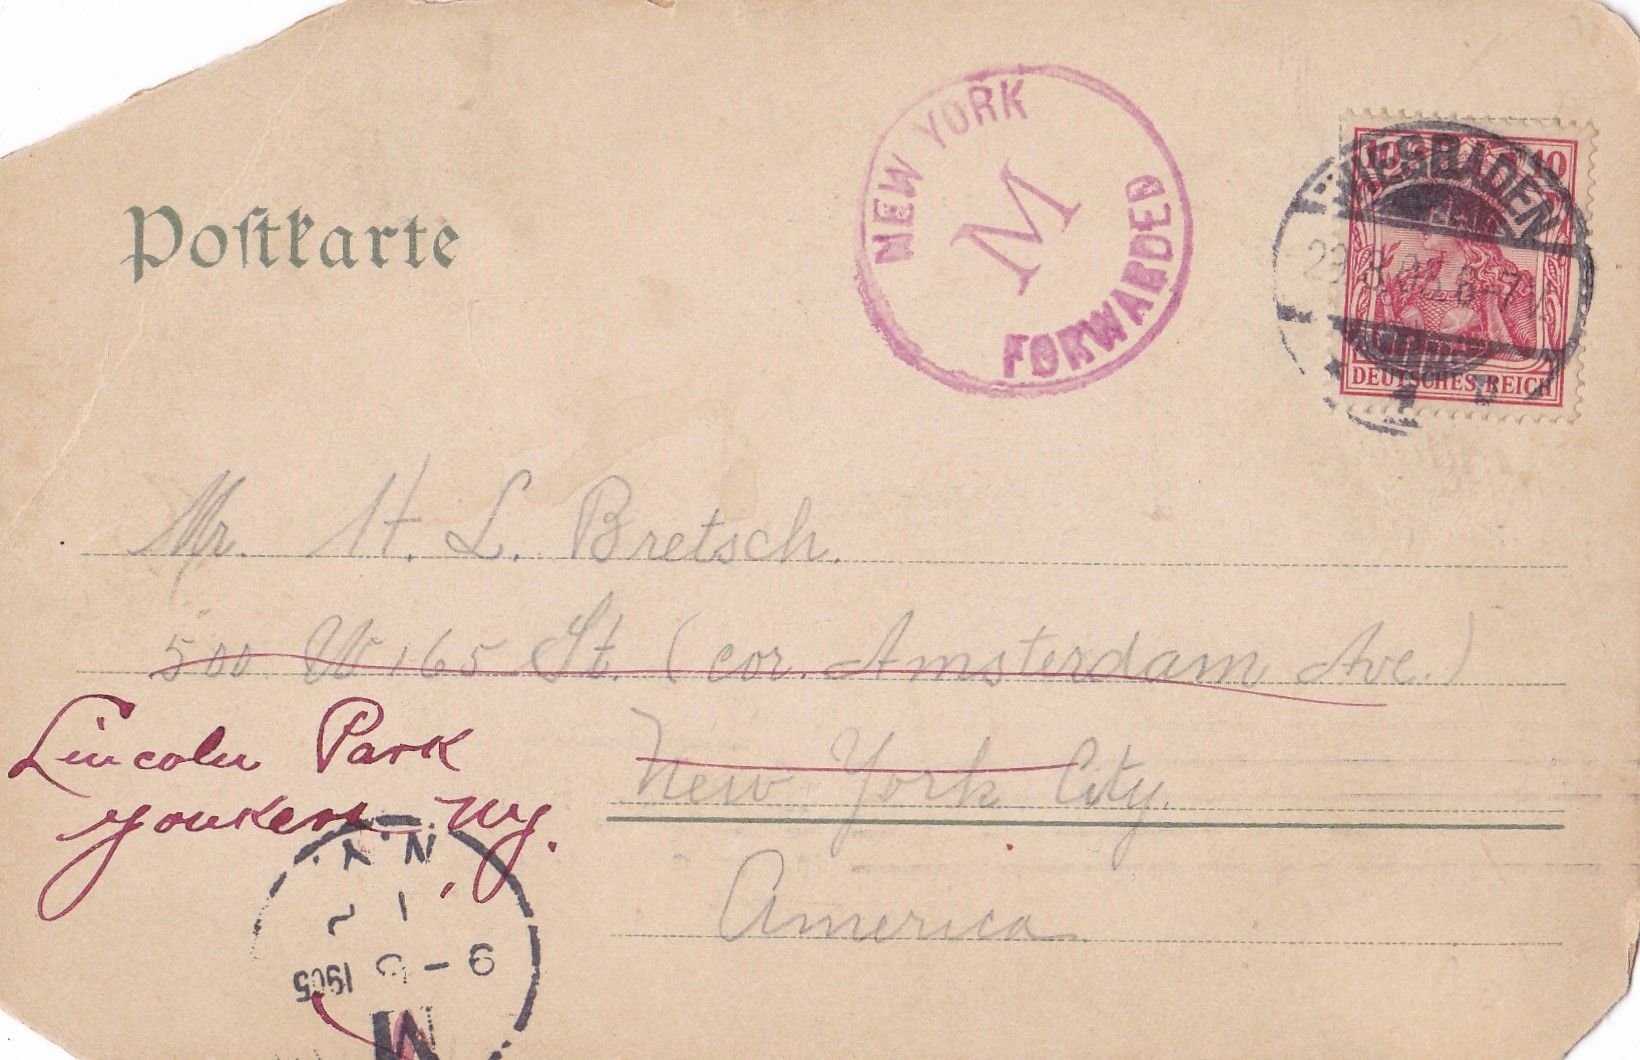 Postkarte
NEW YORK
M
FORWARDED
10
WIESBADEN
DEUTSCHES REICH
Mr. H. L. Bretsch.
500 W 165 St. (cor. Amsterdam Ave.)
New York City.
America
Lincoln Park
Yonkers NY.
N.Y.
1905
M